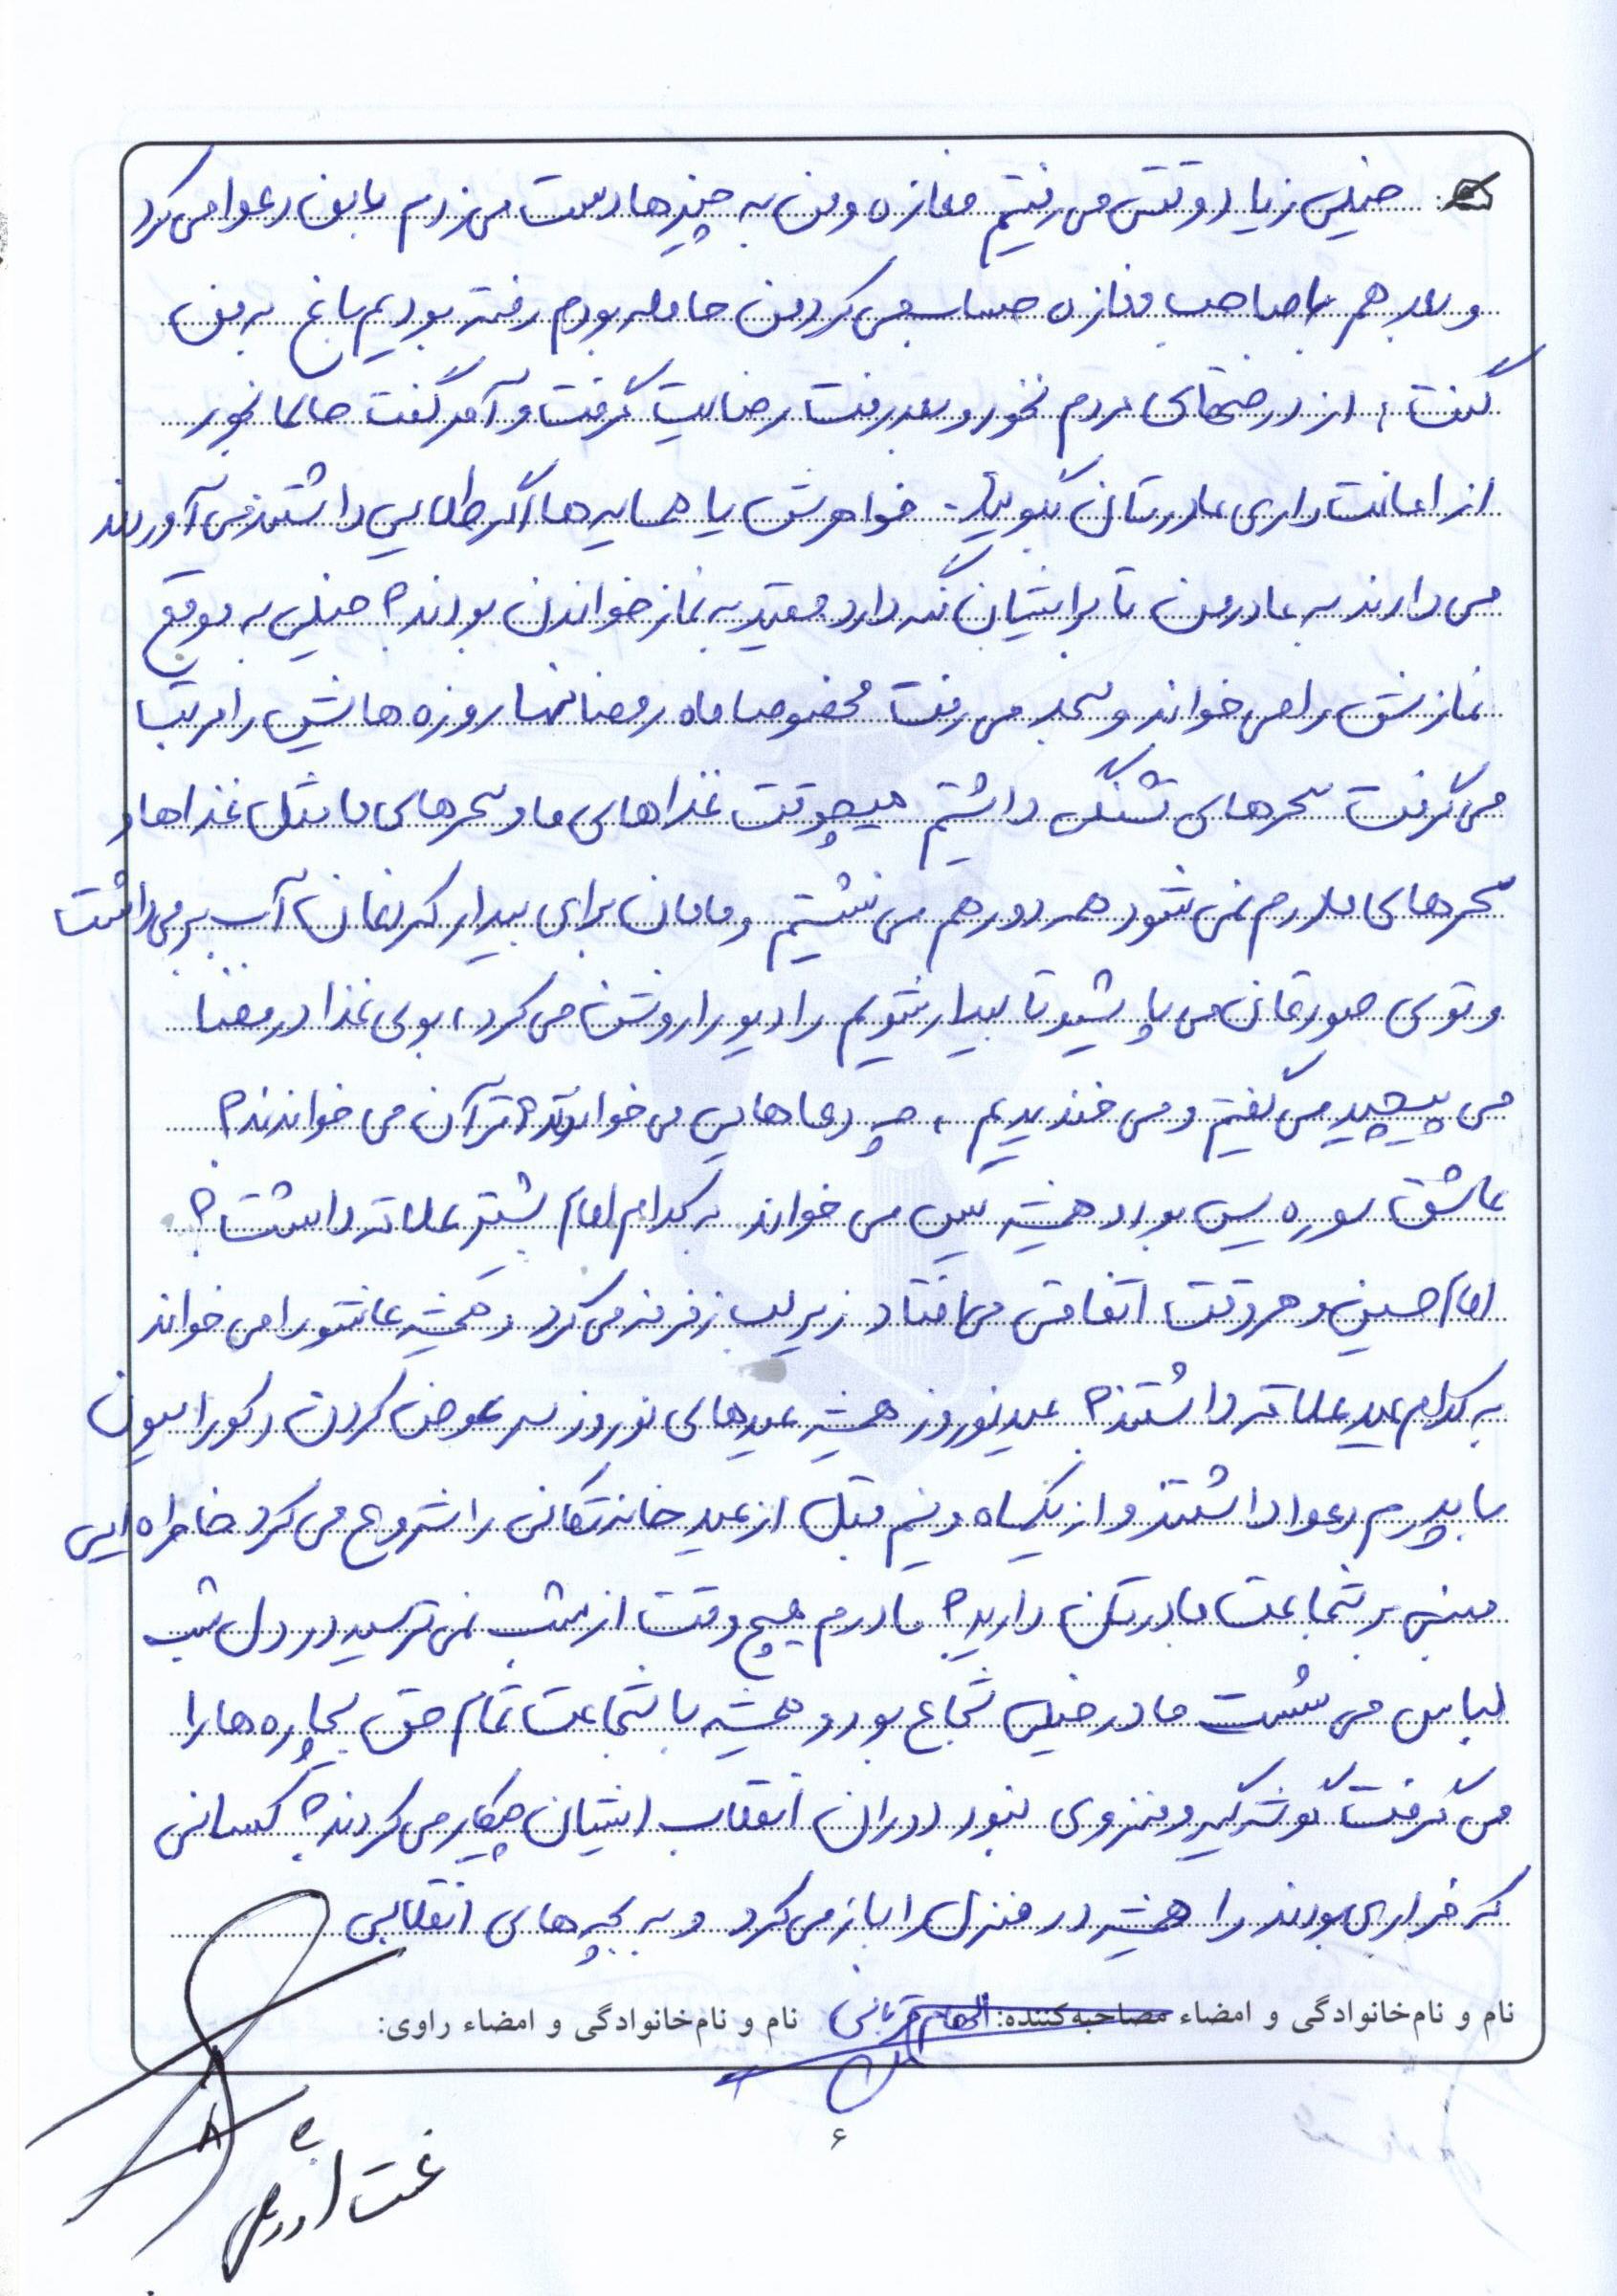 خیلی زیاد وقتی می رفتیم مغازه ومن به چیزها دست می زدم با من دعوا می کرد
و بعد هم با صاحب مغازه حساب می کرد من حامله بودم رفته بودیم باغ به من
گفت، از درختهای مردم نخور و بعد رفت رضایت گرفت و آمد گفت حالا بخور
از امانت داری مادرتان بگویید. خواهرش یا همسایه ها اگر طلایی داشتند می آوردند
می دادند به مادر من تا برایشان نگه دارد مقید به نماز خواندن بودند؟ خیلی به موقع
نمازش را می خواند و مسجد می رفت مخصوصا ماه رمضانها روزه هایش را مرتب
می گرفت سحرهای قشنگی داشتیم هیچوقت غذاهای ما و سحرهای ما مثل غذاها و
سحرهای مادرم نمی شود همه دور هم می نشستیم و مامان برای بیدار کردنمان آب برمی داشت
و توی صورتمان می پاشید تا بیدار شویم رادیو را روشن می کرد، بوی غذا در فضا
می پیچید می گفتیم و می خندیدیم، چه دعاهایی می خواندند؟ قرآن می خواندند؟
عاشق سوره یس بود و همیشه یس می خواند به کدام امام بیشتر علاقه داشت؟
امام حسین و هر وقت اتفاقی می افتاد زیر لب زمزمه می کرد و همیشه عاشورا می خواند
به کدام عید علاقه داشتند؟ عید نوروز همیشه عیدهای نوروز سر عوض کردن دکوراسیون
با پدرم دعوا داشتند و از یکماه و نیم قبل از عید خانه تکانی را شروع می کرد خاطره ایی
مبنی بر شجاعت مادرتان دارید؟ مادرم هیچ وقت از شب نمی ترسید در دل شب
لباس می شست مادر خیلی شجاع بود و همیشه با شجاعت تمام حق بیچاره ها را
می گرفت گوشه گیر و منزوی نبود دوران انقلاب ایشان چیکار می کردند؟ کسانی
که فراری بودند را همیشه در منزل را باز می کرد و به بچه های انقلابی
نام و نام‌خانوادگی و امضاء مصاحبه‌کننده: الهام قربانی نام و نام‌خانوادگی و امضاء راوی:
۶